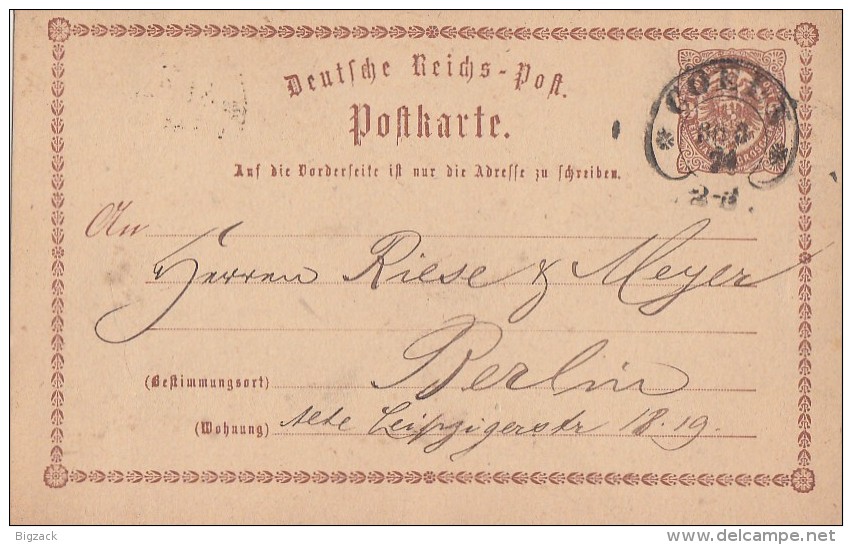 Deutsche Reichs-Post.
Postkarte.
Auf die Vorderseite ist nur die Adresse zu schreiben.
COELN
2-3
An
Herren Riese & Meyer
Berlin
(Bestimmungsort)
(Wohnung) Alte Leipzigerstr 18.19.
Bigzack
delcampe.net